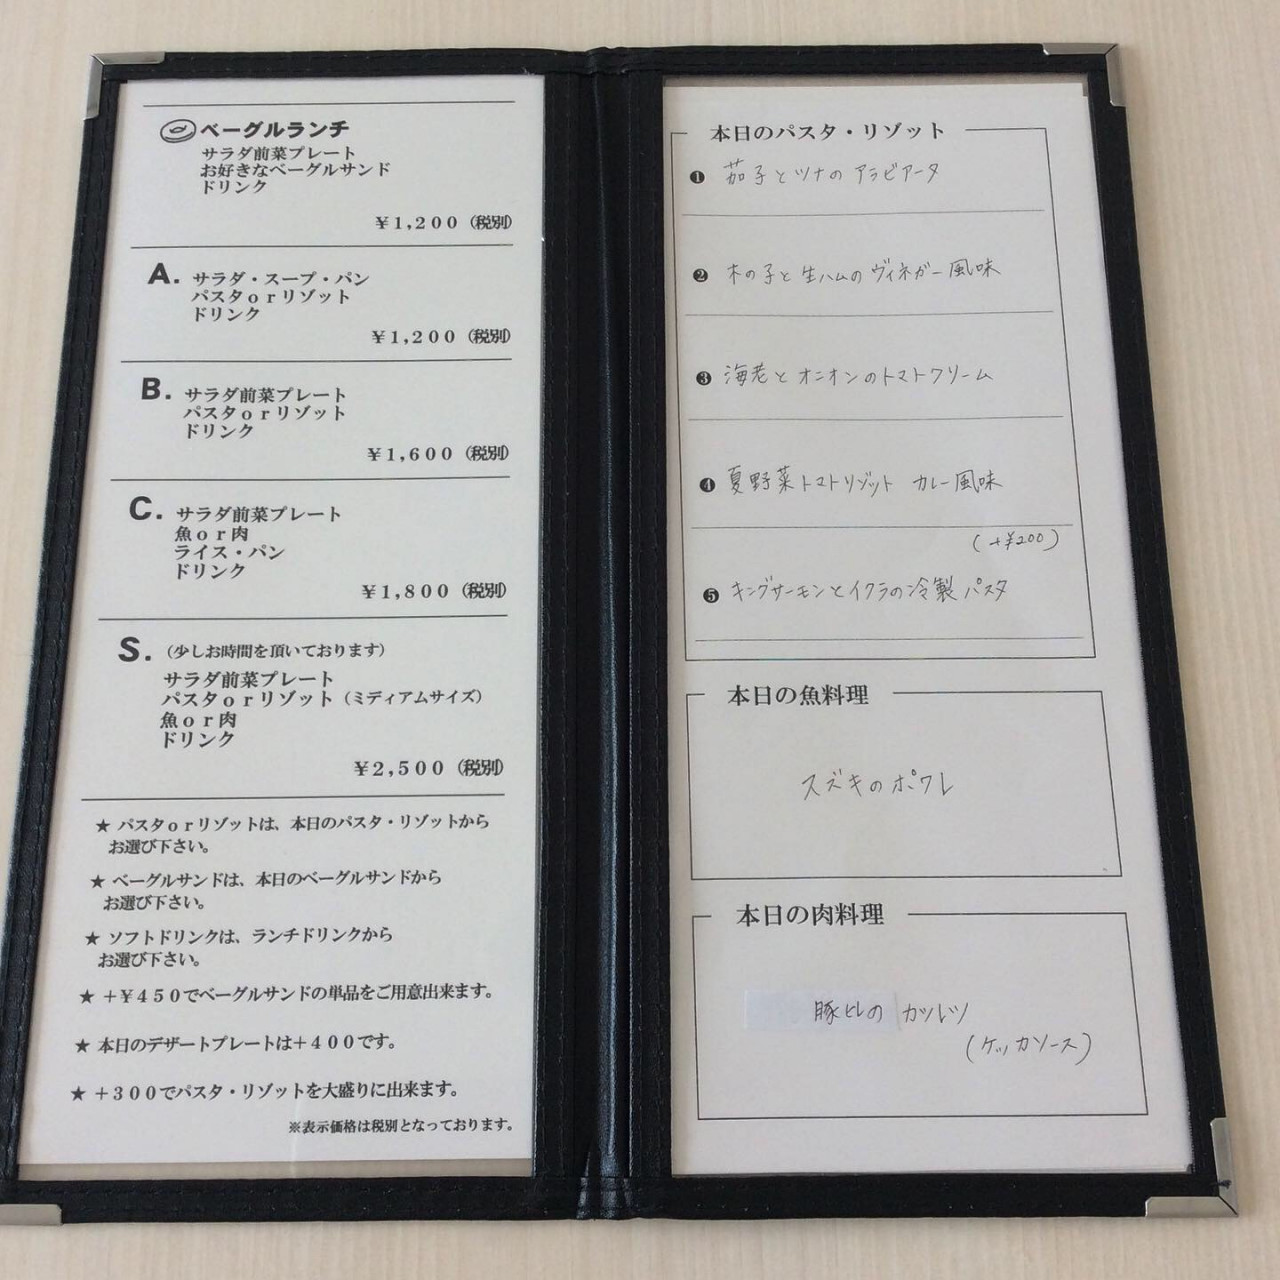 ベーグルランチ
サラダ前菜プレート
お好きなベーグルサンド
ドリンク
￥1,200（税別）
A.
サラダ・スープ・パン
パスタｏｒリゾット
ドリンク
￥1,200（税別）
B.
サラダ前菜プレート
パスタｏｒリゾット
ドリンク
￥1,600（税別）
C.
サラダ前菜プレート
魚ｏｒ肉
ライス・パン
ドリンク
￥1,800（税別）
S.（少しお時間を頂いております）
サラダ前菜プレート
パスタｏｒリゾット（ミディアムサイズ）
魚ｏｒ肉
ドリンク
￥2,500（税別）
★ パスタｏｒリゾットは、本日のパスタ・リゾットから
お選び下さい。
★ ベーグルサンドは、本日のベーグルサンドから
お選び下さい。
★ ソフトドリンクは、ランチドリンクから
お選び下さい。
★ ＋￥４５０でベーグルサンドの単品をご用意出来ます。
★ 本日のデザートプレートは＋４００です。
★ ＋３００でパスタ・リゾットを大盛りに出来ます。
※表示価格は税別となっております。
本日のパスタ・リゾット
❶ 茄子とツナのアラビアータ
❷ 木の子と生ハムのヴィネガー風味
❸ 海老とオニオンのトマトクリーム
❹ 夏野菜トマトリゾット カレー風味
(+¥200)
❺ キングサーモンとイクラの冷製パスタ
本日の魚料理
スズキのポワレ
本日の肉料理
豚ヒレのカツレツ
(ケッカソース)